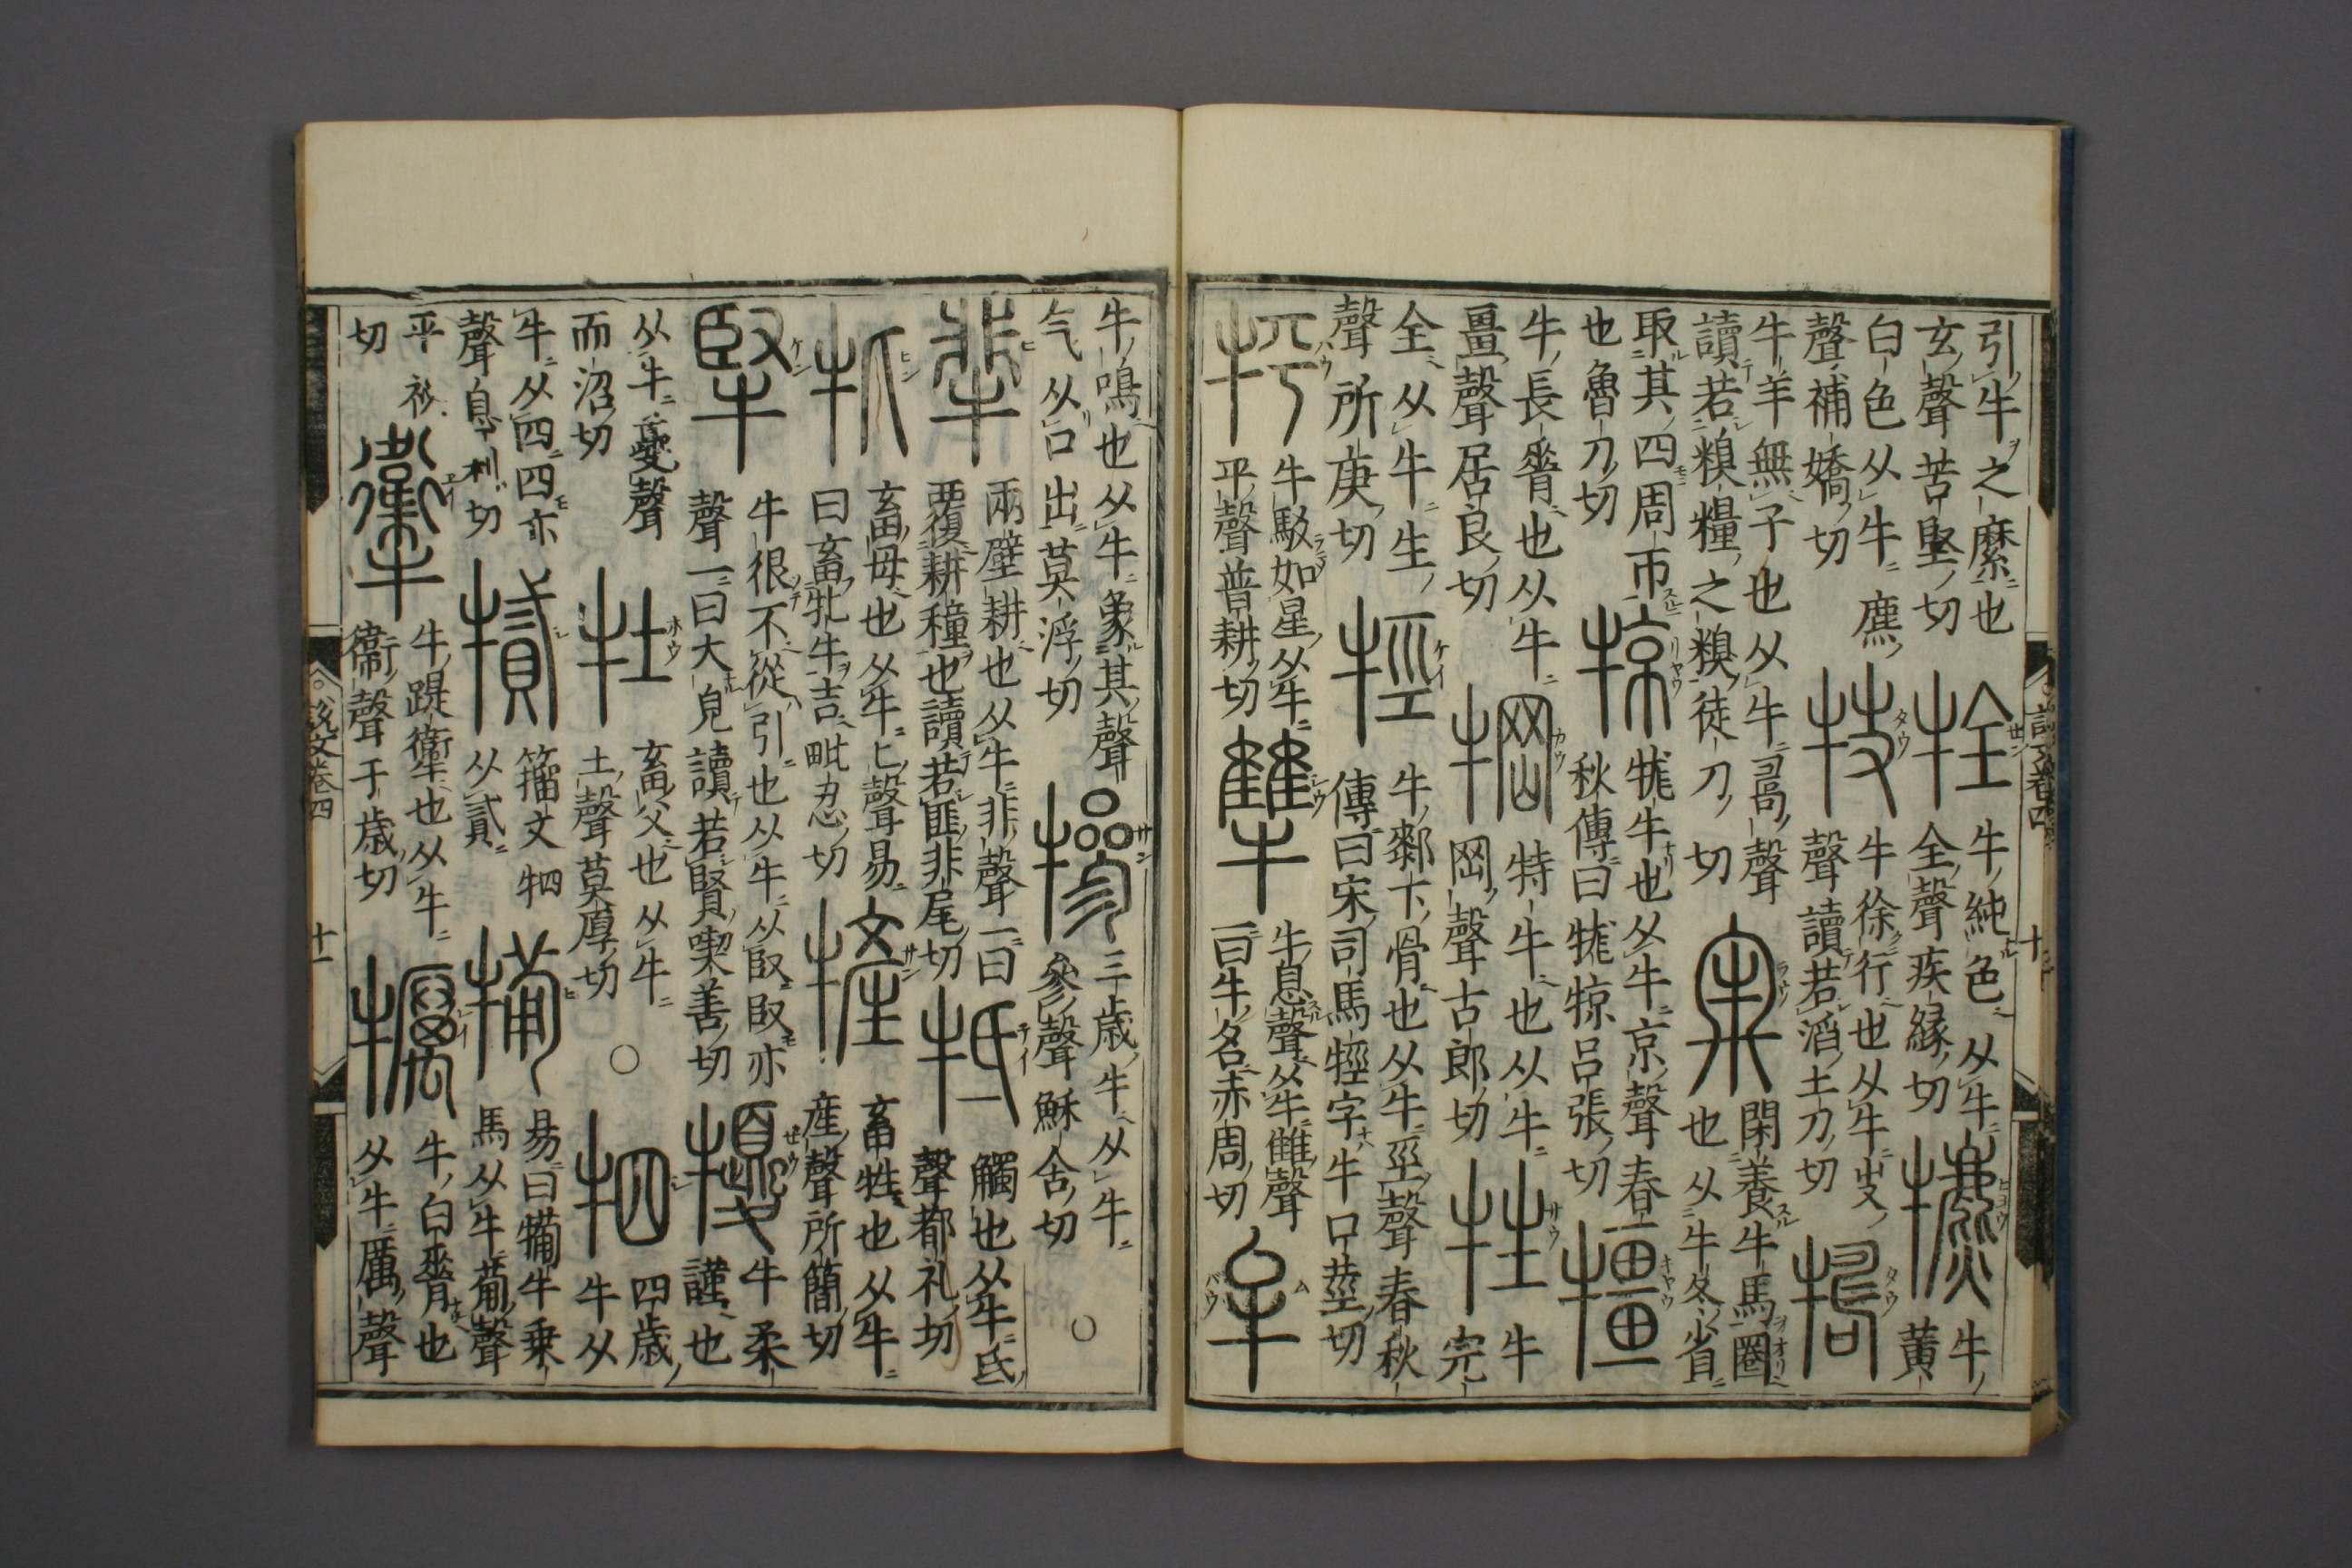 引牛之縻也
玄聲苦堅切
牷
牛純色从牛
全聲疾緣切
犥
牛
黃
白色从牛麃
聲補嬌切
牛徐行也从牛
聲讀若滔土刀切
牛羊無子也从牛聲
讀若糗糧之糗徒刀切
牢
閑養牛馬圈
也从牛冬省
取其四周帀
也魯刀切
㹁
牻牛也从牛京聲春
秋傳曰牻㹁呂張切
㹔
牛長脊也从牛
畺聲居良切
犅
特牛也从牛
岡聲古郎切
牲
牛
完
全从牛生
聲所庚切
牼
牛䣛下骨也从牛巠聲春秋
傳曰宋司馬牼字牛口莖切
牛駁如星从牛
平聲普耕切
犨
牛息聲从牛雔聲
一曰牛名赤周切
牟
牛鳴也从牛象其聲
气从口出莫浮切
犙
三歲牛从牛
參聲穌含切
○
兩壁耕也从牛非聲一曰
覆耕穜也讀若匪非尾切
牴
觸也从牛氐
聲都礼切
牝
畜母也从牛匕聲易
曰畜牝牛吉毗忍切
㹌
畜牷也从牛
産聲所簡切
牛很不從引也从牛从臤臤亦
聲一曰大皃讀若賢喫善切
犪
牛柔
謹也
从牛夒聲
而沼切
牡
畜父也从牛
土聲莫厚切
○
牭
四歲
牛从
牛从四四亦
聲息利切
籀文牭
从貳
犕
易曰犕牛乗
馬从牛聲
平祕
切
牛踶也从牛
衞聲于歲切
犡
牛白脊也
从牛厲聲
說文卷四
十
說文卷四
十一